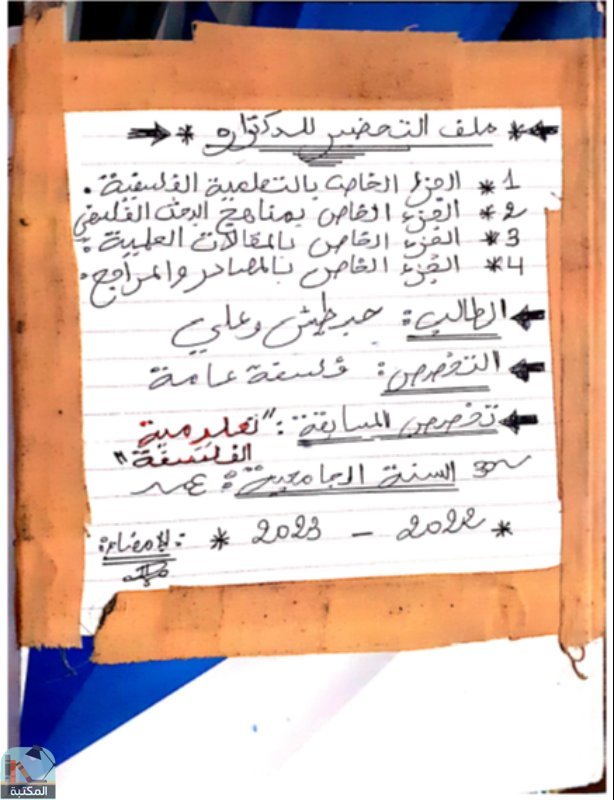 * ملف التحضير للدكتوراه *
1 * الجزء الخاص بالتعلمية الفلسفية.
2 * الجزء الخاص بمناهج البحث الفلسفي
3 * الجزء الخاص بالمقالات العلمية.
4 * الجزء الخاص بالمصادر والمراجع.
الطالب: حبرطيش وعلي
التخصص: فلسفة عامة
تخصص المسابقة: "تعليمية
الفلسفة"
السنة الجامعية:
* 2022 - 2023 * الإمضاء:
المكتبة